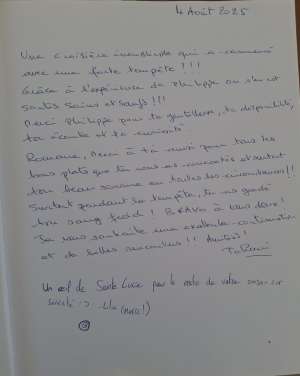 14 Août 2025
Une croisière inoubliable qui a commencé
avec une forte tempête !!!
Grâce à l'expérience de Philippe on s'en est
sortis sains et saufs !!!
Merci Philippe pour ta gentillesse, ta disponibilité,
ton écoute et ta
Romane, Merci à toi aussi pour tous les
bons plats que tu nous as concoctés et surtout
ton beau sourire en toutes les circonstances !!
Surtout pendant la tempête, tu as gardé
ton sang froid ! BRAVO à vous deux !
Je vous souhaite une excellente continuation
et de belles rencontres !! Amitiés !
Un œil de Sainte Lucie pour le reste de votre
:-) Lila (merci !)